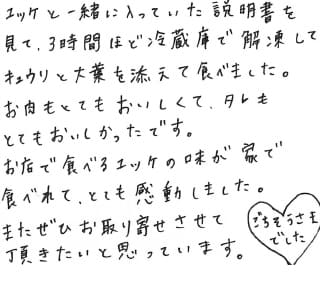 ユッケと一緒に入っていた説明書を
見て、3時間ほど冷蔵庫で解凍して
キュウリと大葉を添えて食べました。
お肉もとてもおいしくて、タレも
とてもおいしかったです。
お店で食べるユッケの味が家で
食べれて、とても感動しました。
またぜひお取り寄せさせて
頂きたいと思っています。
ごちそうさま
でした